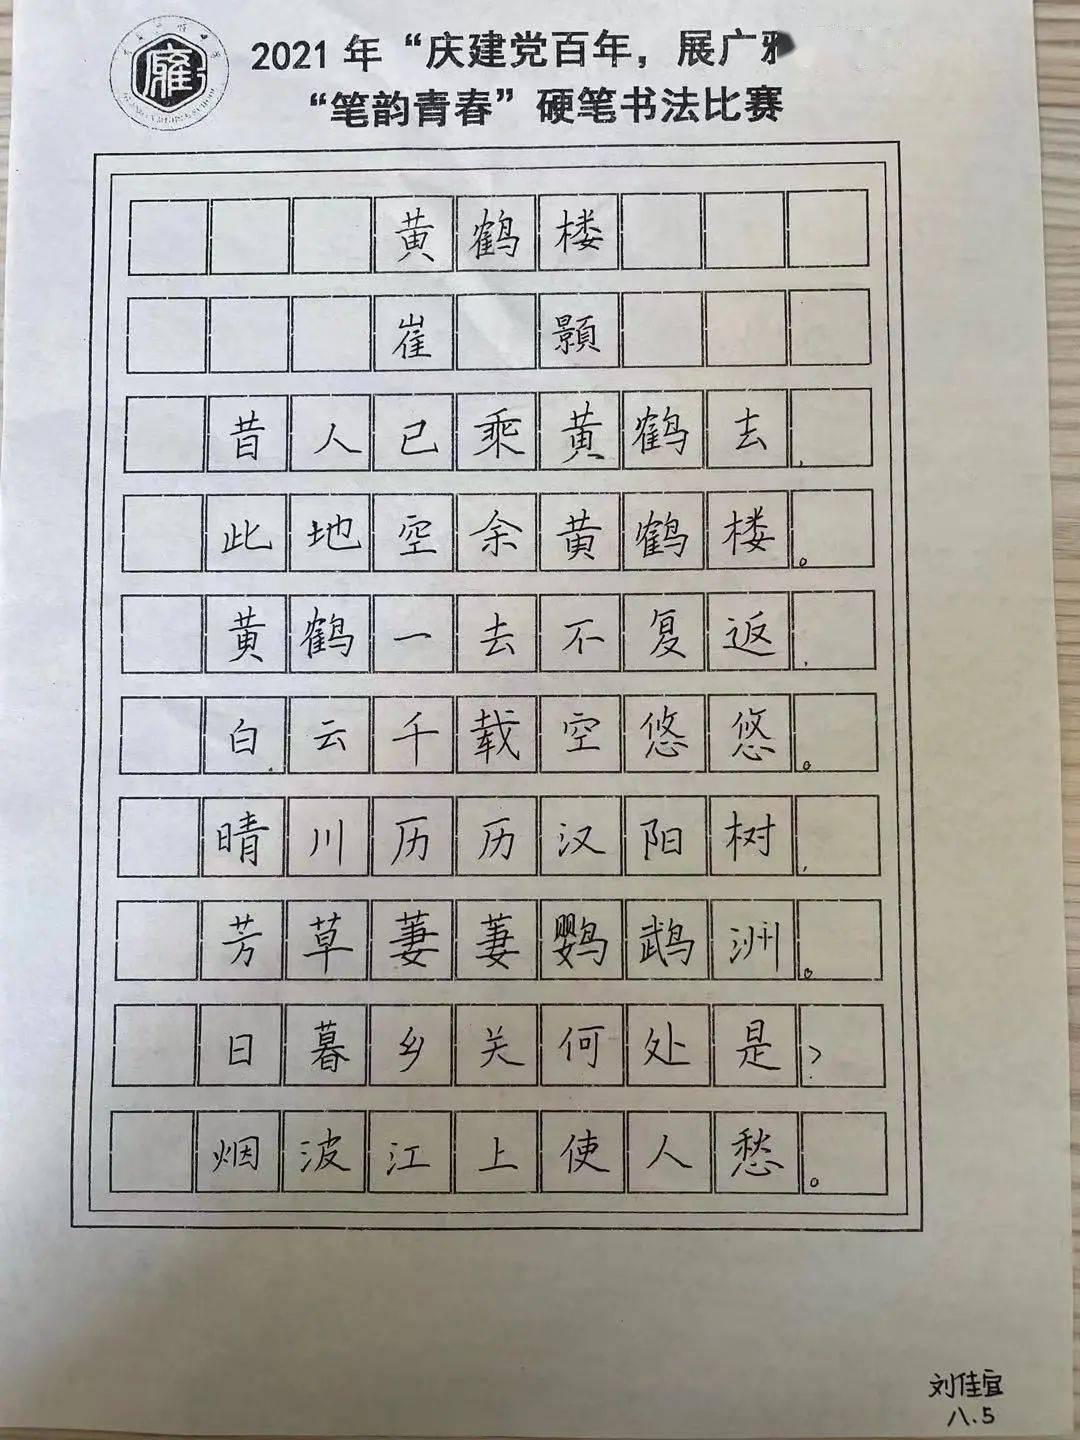 2021年“庆建党百年，展广雅
“笔韵青春”硬笔书法比赛
黄鹤楼
崔颢
昔人已乘黄鹤去,
此地空余黄鹤楼。
黄鹤一去不复返,
白云千载空悠悠。
晴川历历汉阳树,
芳草萋萋鹦鹉洲。
日暮乡关何处是?
烟波江上使人愁。
刘佳宜
八.5